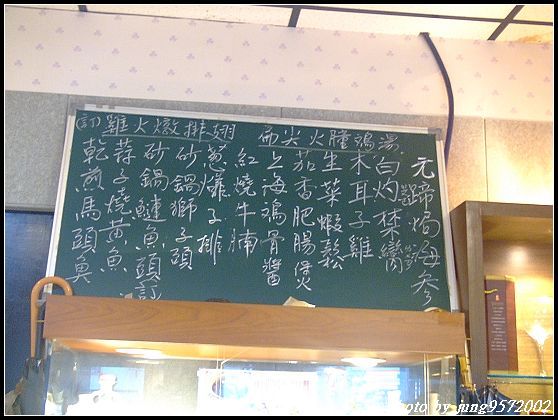 (訂)雞火燉排翅
扁尖火腫鴿湯
元蹄焗海參
白灼禁臠
木耳子雞
生菜蝦鬆
茄香肥腸煲
上海鴿骨醬
紅燒牛腩
蔥爆子排
砂鍋獅子頭
砂鍋鰱魚頭訂
蒜子燒黃魚
乾煎馬頭魚
Photo by jung9572002